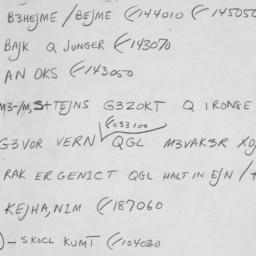 B3HEJME / BEJME (/144010 (/145050
BAJK Q JUNGER (/143070
AN DKS (/143050
M3-/M, S+TEJNS G3ZOKT Q IRONSE
(/033100
G3VOR VERN QGL M3VAK3R XO/
RAK ER GENICT QGL HALT IN EJN /+
KEJHA,NIM (/187060
)-SKOCL KUMT (/104030